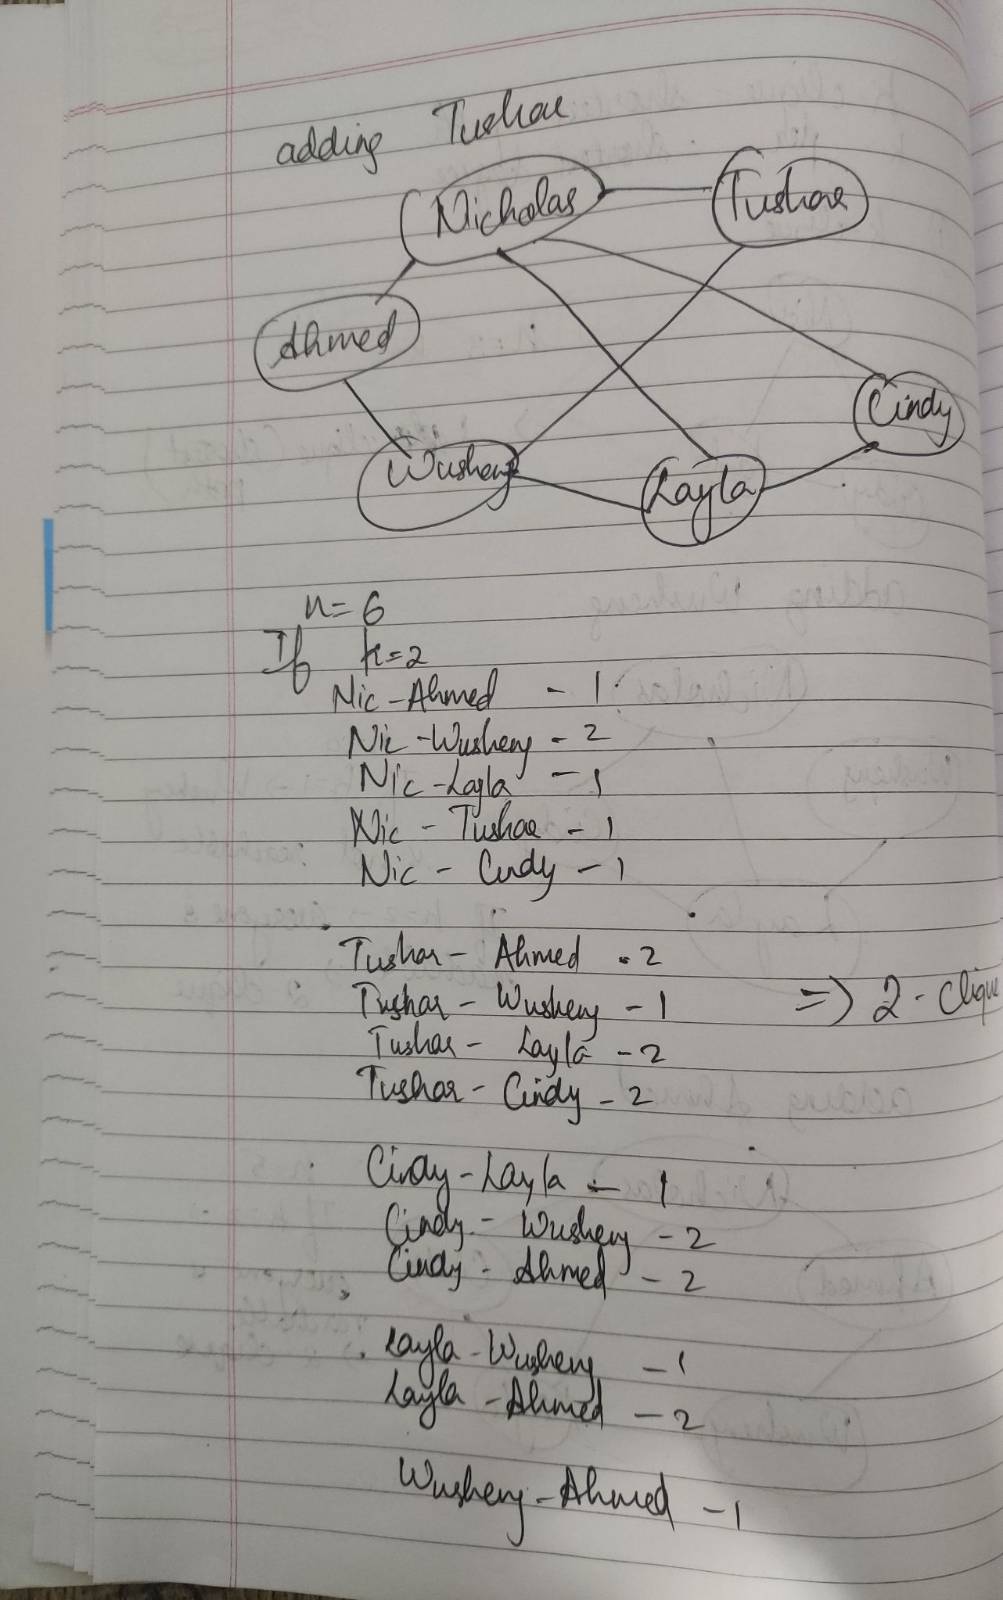 adding Tushar
Nicholas
Tushar
Ahmed
Cindy
Wusheng
Layla
n= 6
If k=2
Nic - Ahmed - 1
Nic - Wusheng - 2
Nic - Layla - 1
Nic - Tushar - 1
Nic - Cindy - 1
Tushar - Ahmed - 2
Tushar - Wusheng - 1
=> 2 - Clique
Tushar - Layla - 2
Tushar - Cindy - 2
Cindy - Layla - 1
Cindy - Wusheng - 2
Cindy - Ahmed - 2
Layla - Wusheng - 1
Layla - Ahmed - 2
Wusheng - Ahmed - 1